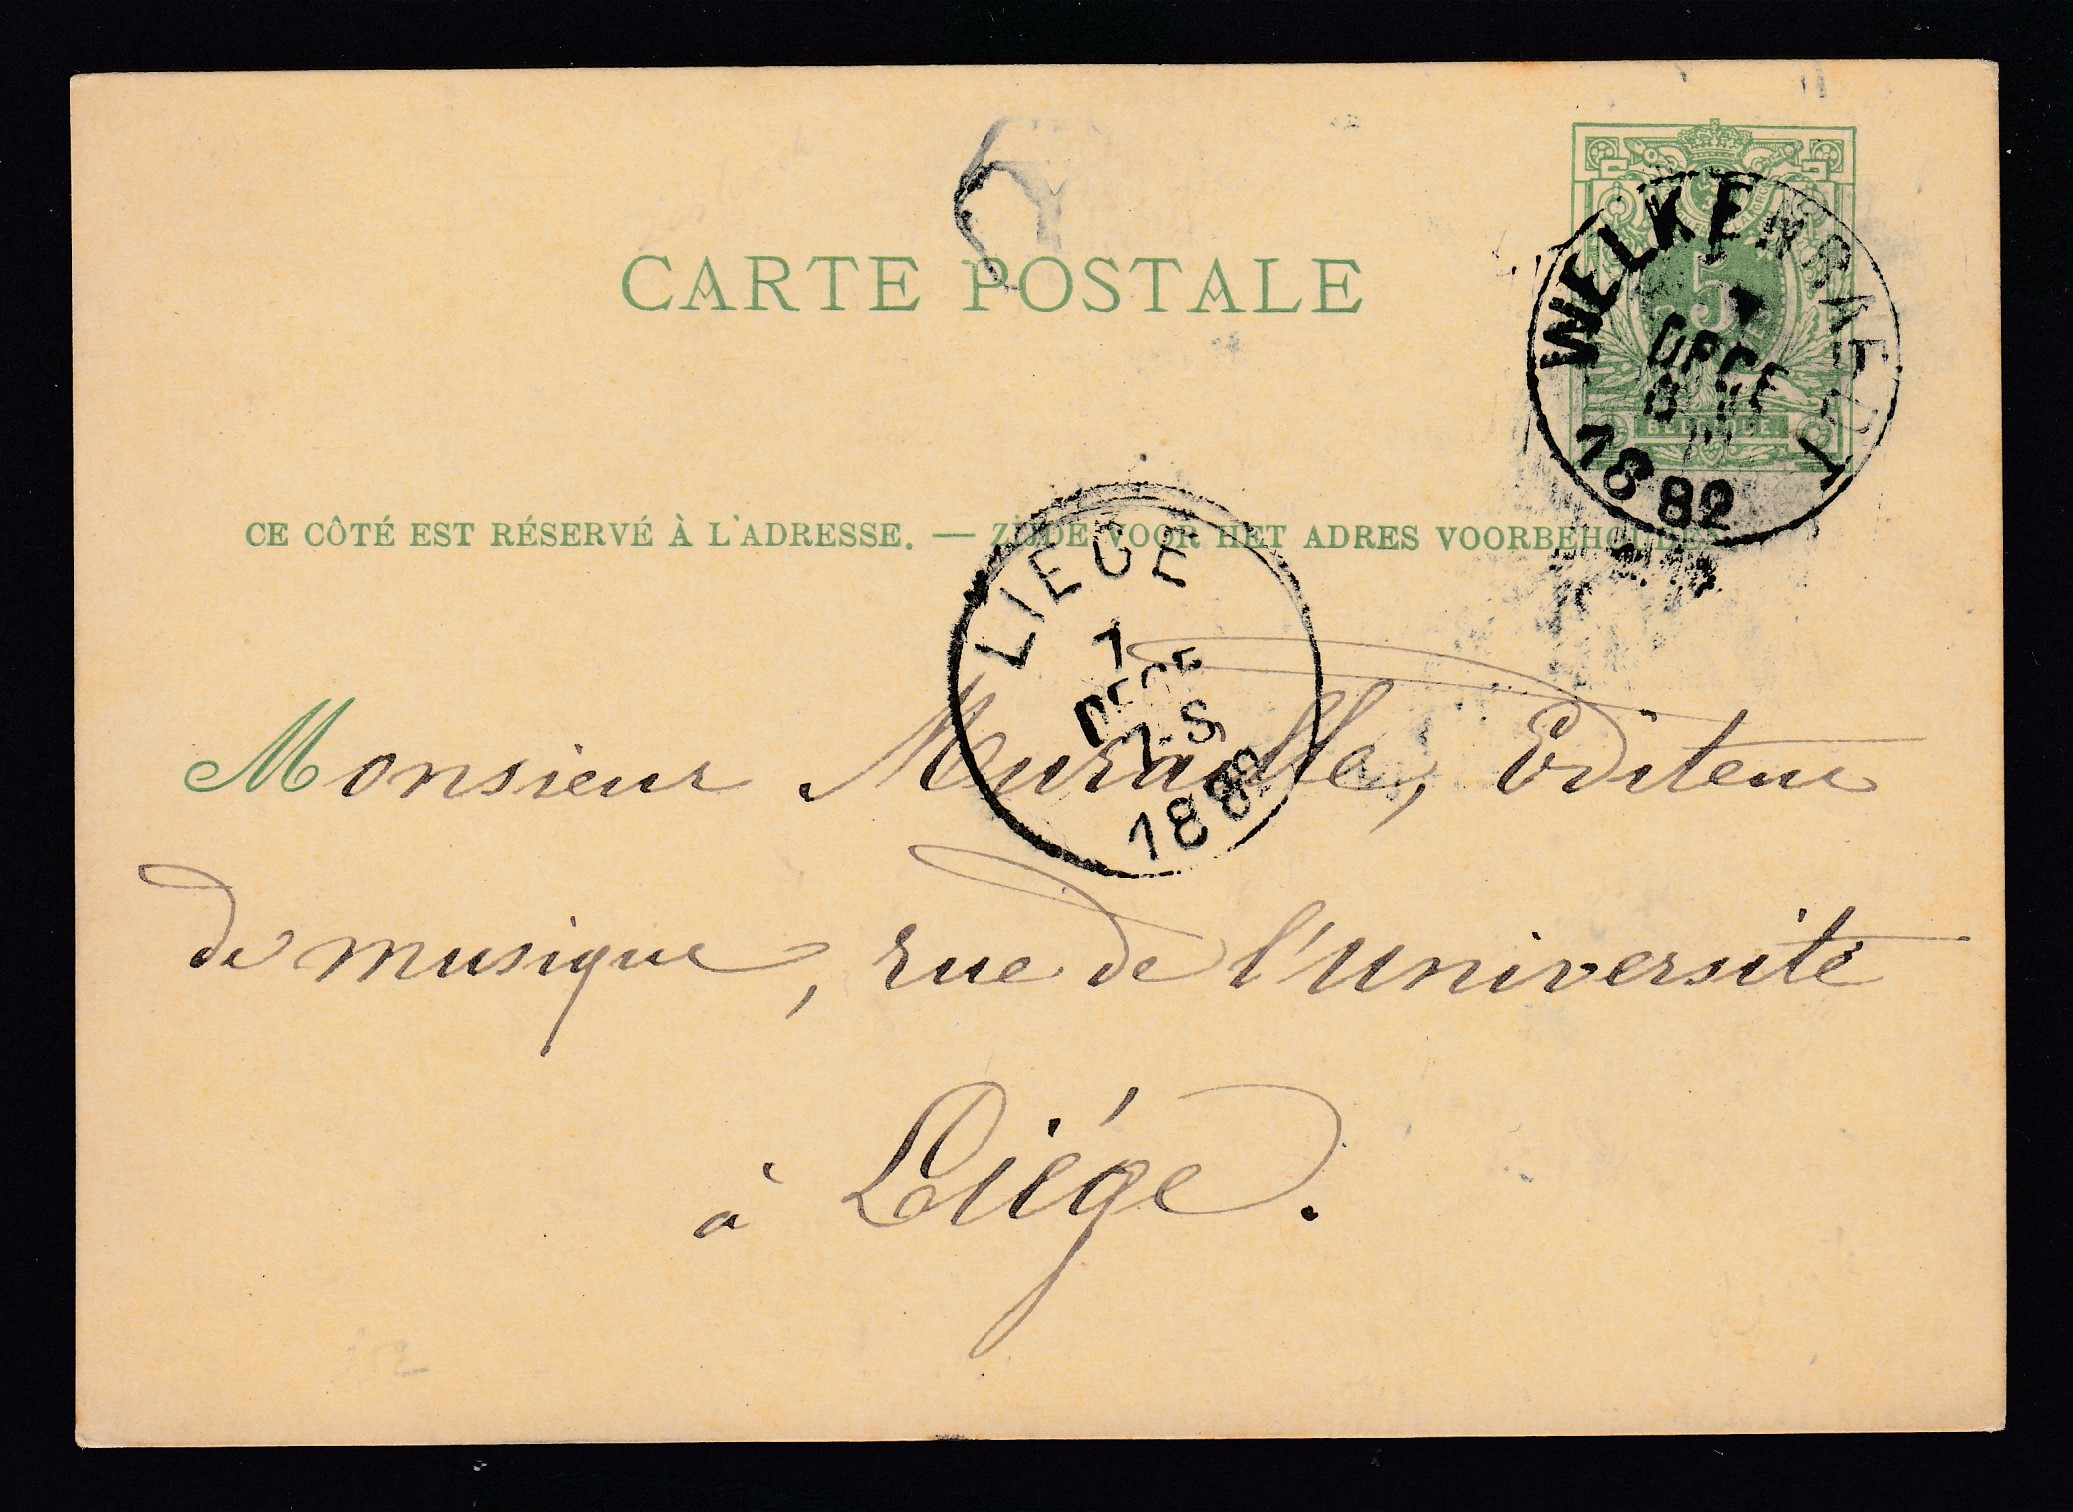 CARTE POSTALE
5
BELGIQUE
WELKENRAEDT
7
DECE
1882
CE CÔTÉ EST RÉSERVÉ À L'ADRESSE. — ZIJDE VOOR HET ADRES VOORBEHOUDEN
LIEGE
7
DECE
7-S
1882
Monsieur Muraille, Editeur
de musique, rue de l'Université
à Liége.